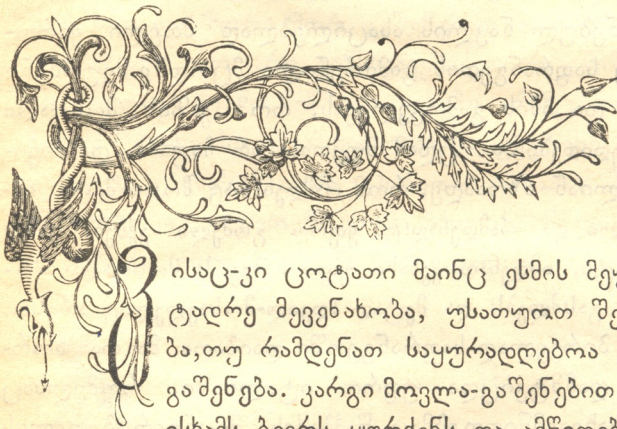 ვისაც-კი ცოტათი მაინც ესმის
ტადრე მევენახობა, უსათუოთ
ბა,თუ რამდენათ საყურადღებოა
გაშენება. კარგი მოვლა-გაშენებით
ისხამს ბევრს ყურძენს და